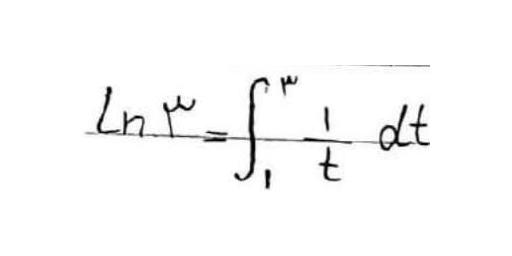 Ln ۳ = ∫₁^۳ 1/t dt